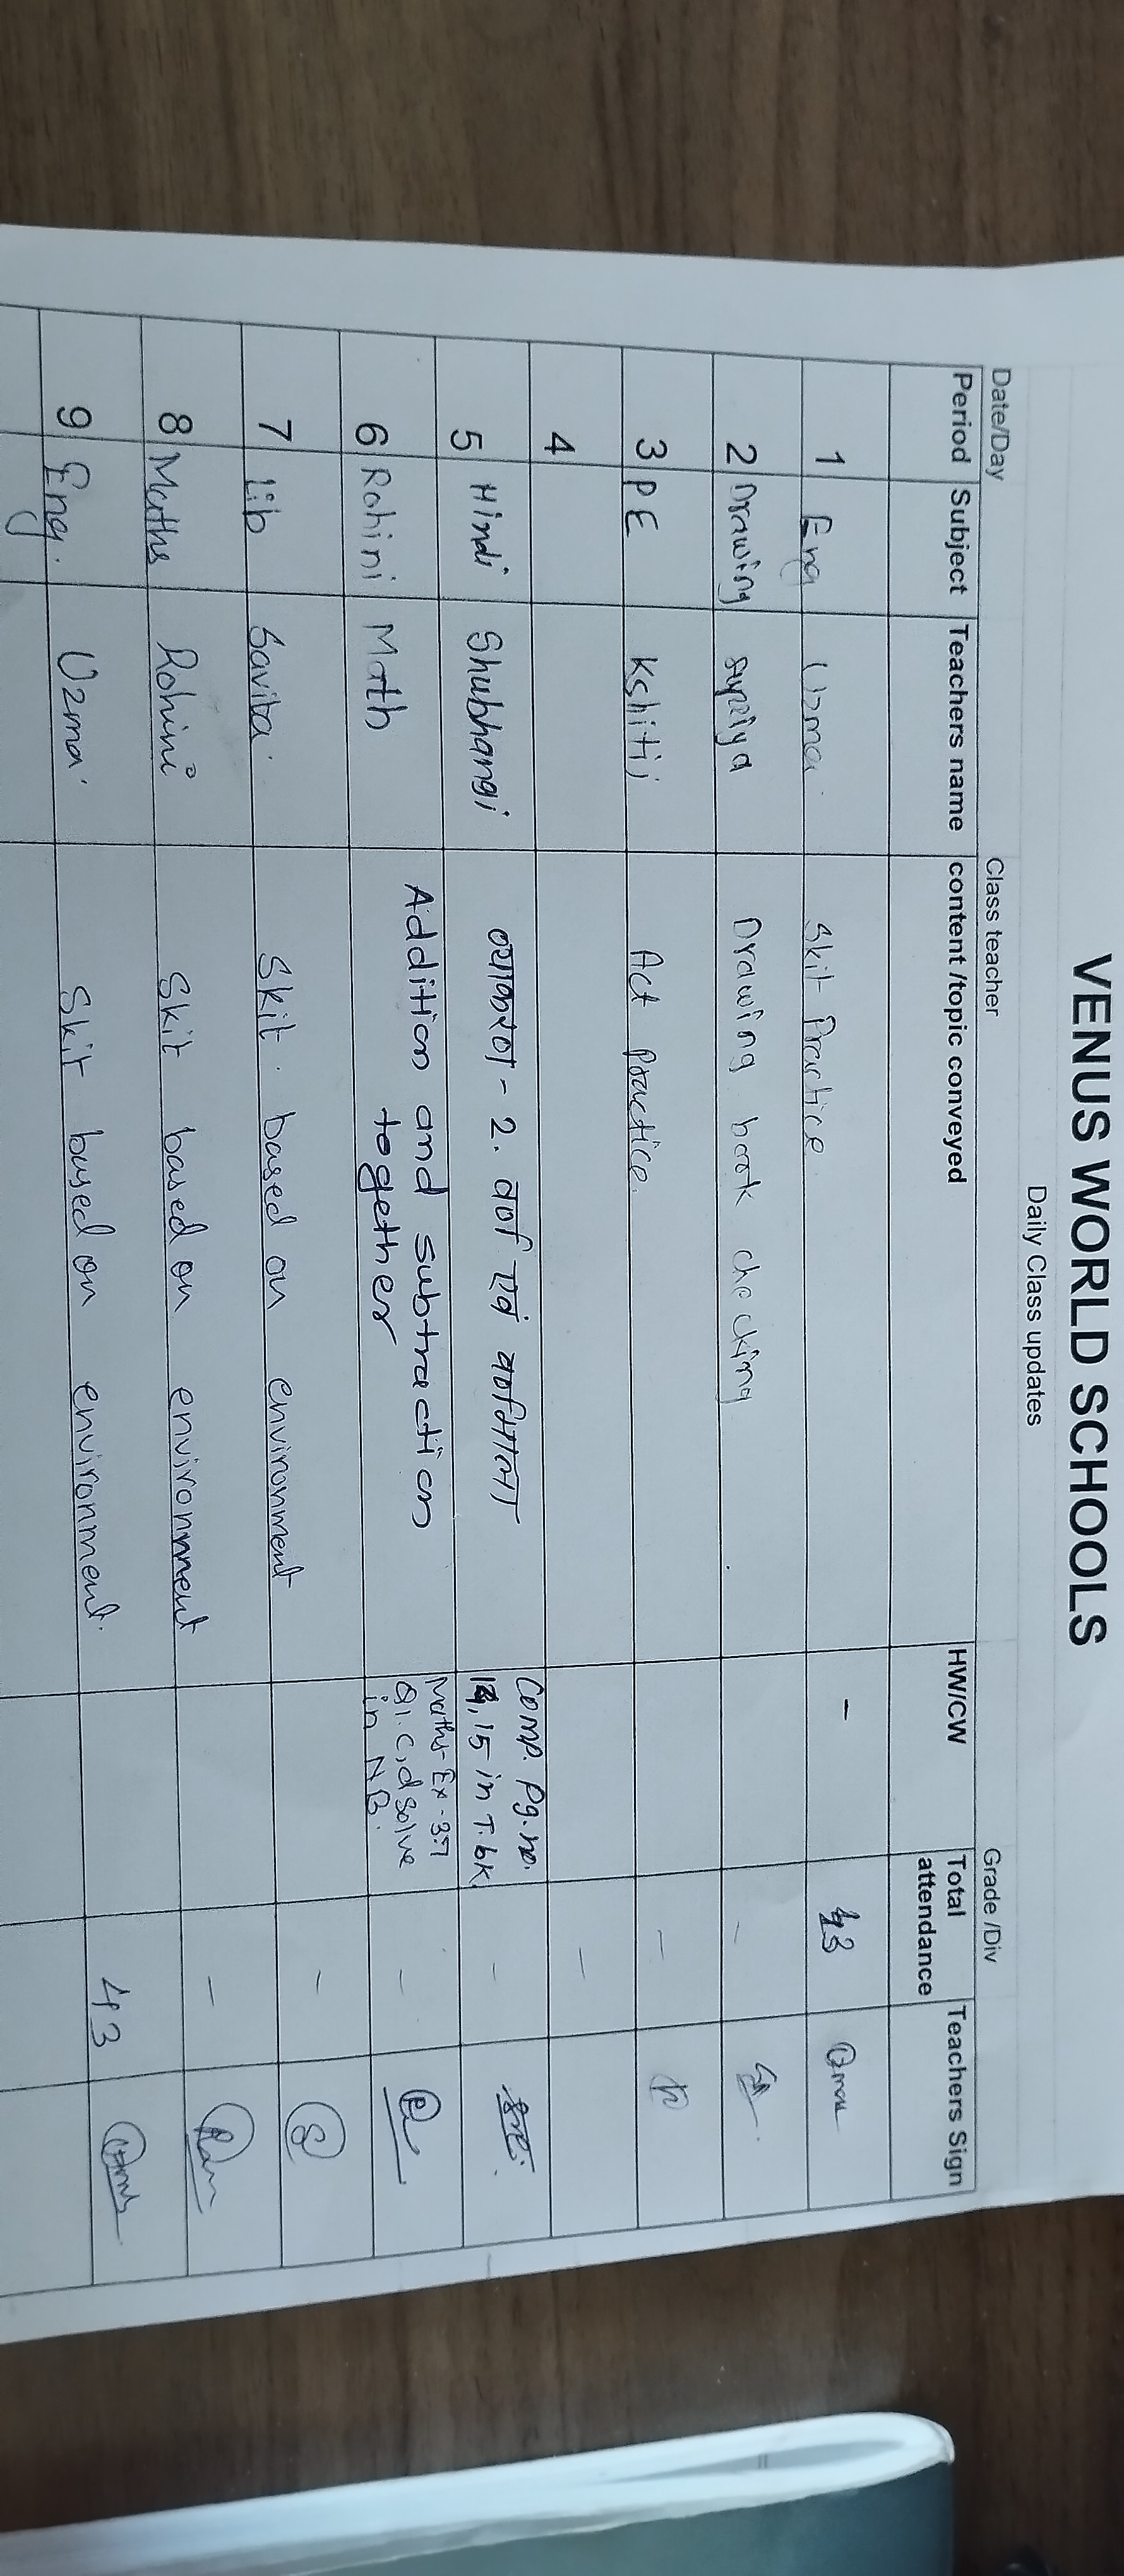 VENUS WORLD SCHOOLS
Daily Class updates
Date/Day Class teacher Grade /Div
Period Subject Teachers name content /topic conveyed HW/CW Total attendance Teachers Sign
1 Eng Uzma Skit Practice - 43
2 Drawing Supriya Drawing book checking -
3 PE Kshitij Act Practice. -
4 -
5 Hindi Shubhangi व्याकरण - 2. वर्ण एवं वर्णमाला Comp. Pg. no. 14, 15 in T. bk. -
6 Rohini Math Addition and subtraction together Maths Ex - 3.7 Q1. c, d solve in N.B. -
7 Lib Savita Skit based on environment -
8 Maths Rohini Skit based on environment -
9 Eng. Uzma Skit based on environment. 43